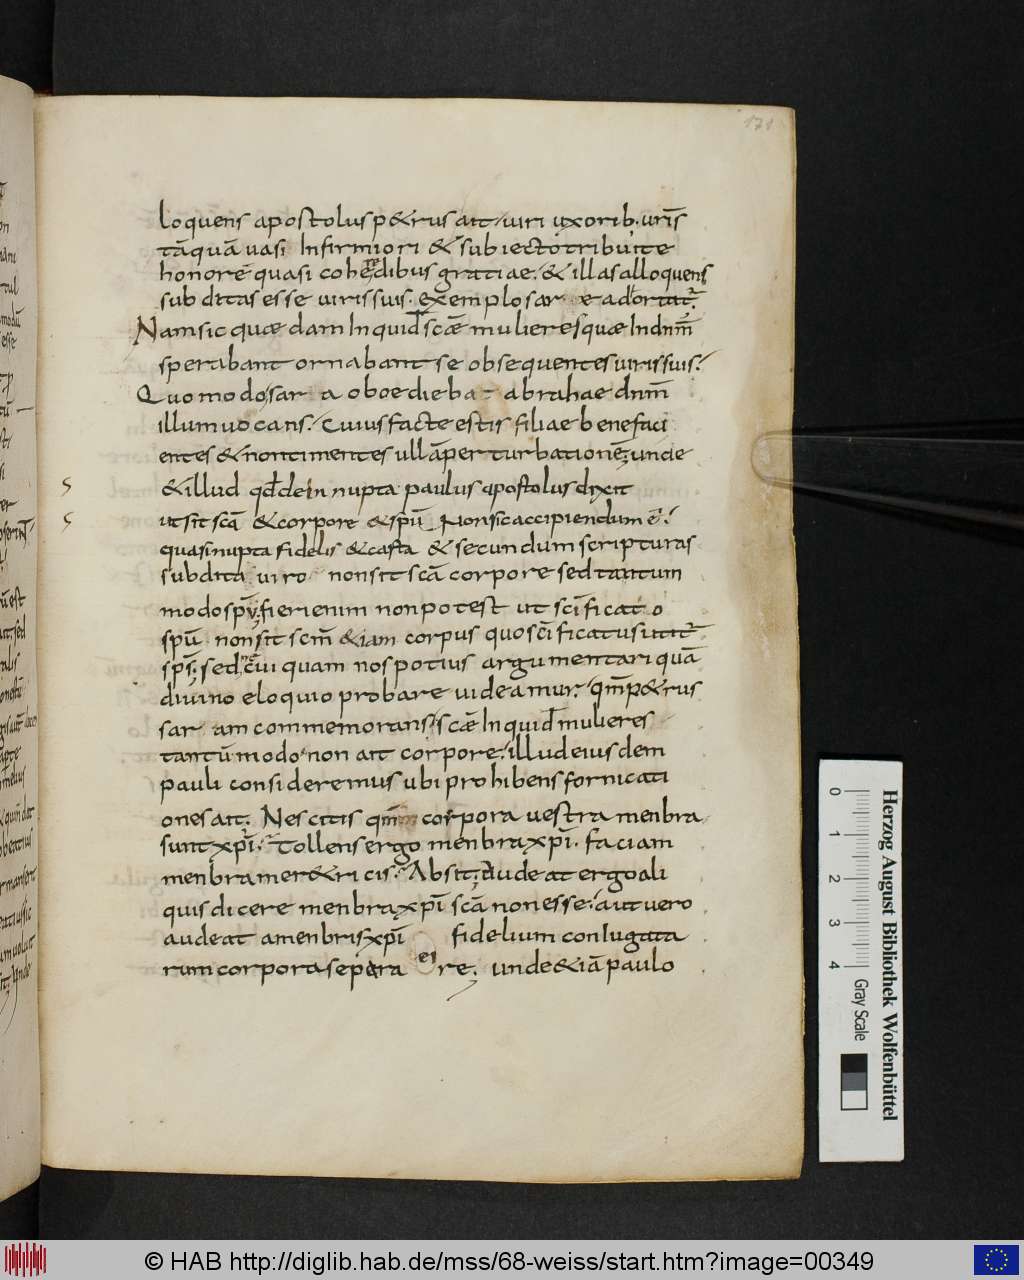 171
loquens apostolus p&rus ait uiri uxorib; uris̄
tāquā uasi Infirmiori & subiecto tribuite
honorē quasi coheredibus gratiae. & illas alloquens
subditas esse uiris suis. exemplo sar e adortat̄.
Nam sic quædam Inquid scǣ mulieres quæ In dnm̄
sperabant ornabant se obsequentes uiris suis.
Quomodo sar a oboedieba abrahae dnm̄
illum uocans. Cuius facte estis filiae benefaci
entes & non timentes ullā perturbationē; unde
& illud qd̄ de Innupta paulus apostolus dixit
ut sit scā & corpore & spū Non sic accipiendum ē.
quasi nupta fidelis & casta & secundum scripturas
subdita uiro non sit scā corpore sed tantum
modo spū; fieri enim non potest ut scīficato
spū non sit scm̄ &iam corpus quo scīficatus utit̄
sps̄; sed ne cui quam nos potius argumentari quā
diuino eloquio probare uideamur. qm̄ p&rus
sar am commemorans scǣ Inquid mulieres
tantūmodo non ait corpore. illud eiusdem
pauli consideremus ubi prohibens fornicati
ones ait. Nescitis qm̄ corpora uestra menbra
sunt xpī. Tollens ergo menbra xpī. faciam
menbra mer&ricis. Absit; Audeat ergo ali
quis dicere menbra xpī scā non esse. aut uero
audeat a menbris xpī fidelium coniugata
rum corpora separa re; unde &iā paulo
0 1 2 3 4
Gray Scale
Herzog August Bibliothek Wolfenbüttel
© HAB http://diglib.hab.de/mss/68-weiss/start.htm?image=00349